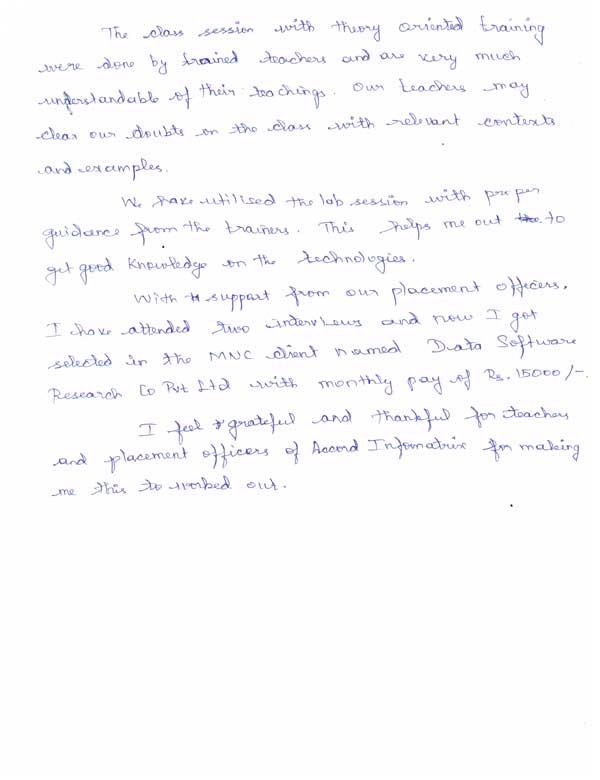 The class session with theory oriented training
were done by trained teachers and are very much
understandable of their teachings. Our teachers may
clear our doubts on the class with relevant contexts
and examples.
We have utilised the lab session with proper
guidance from the trainers. This helps me out to
get good knowledge on the technologies.
With support from our placement officers,
I have attended two interviews and now I got
selected in the MNC client named Data Software
Research Co Pvt Ltd with monthly pay of Rs. 15000/-.
I feel grateful and thankful for teachers
and placement officers of Accord Infomatrix for making
me this to worked out.